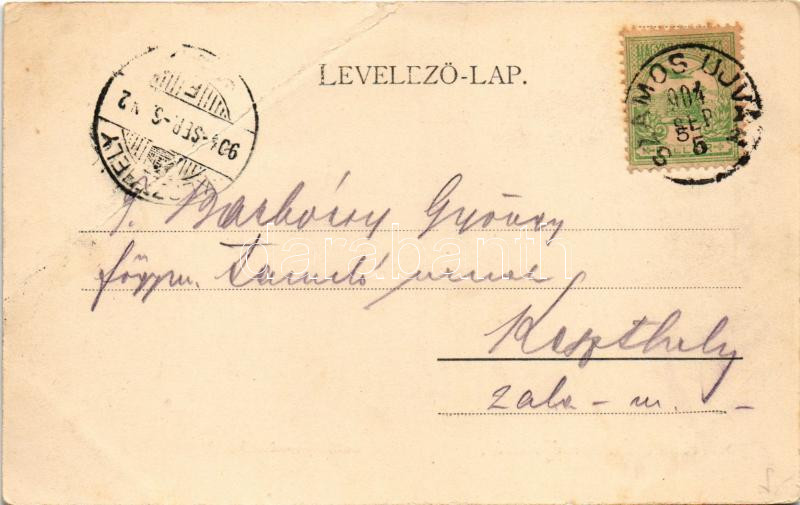 LEVELEZŐ-LAP.
MAGYAR
SZAMOS UJVÁR
904
SEP
5
904 SEP. 6
KESZTHELY
György
főgym. Tanuló urnak
Keszthely
Zala - m.
darabanth